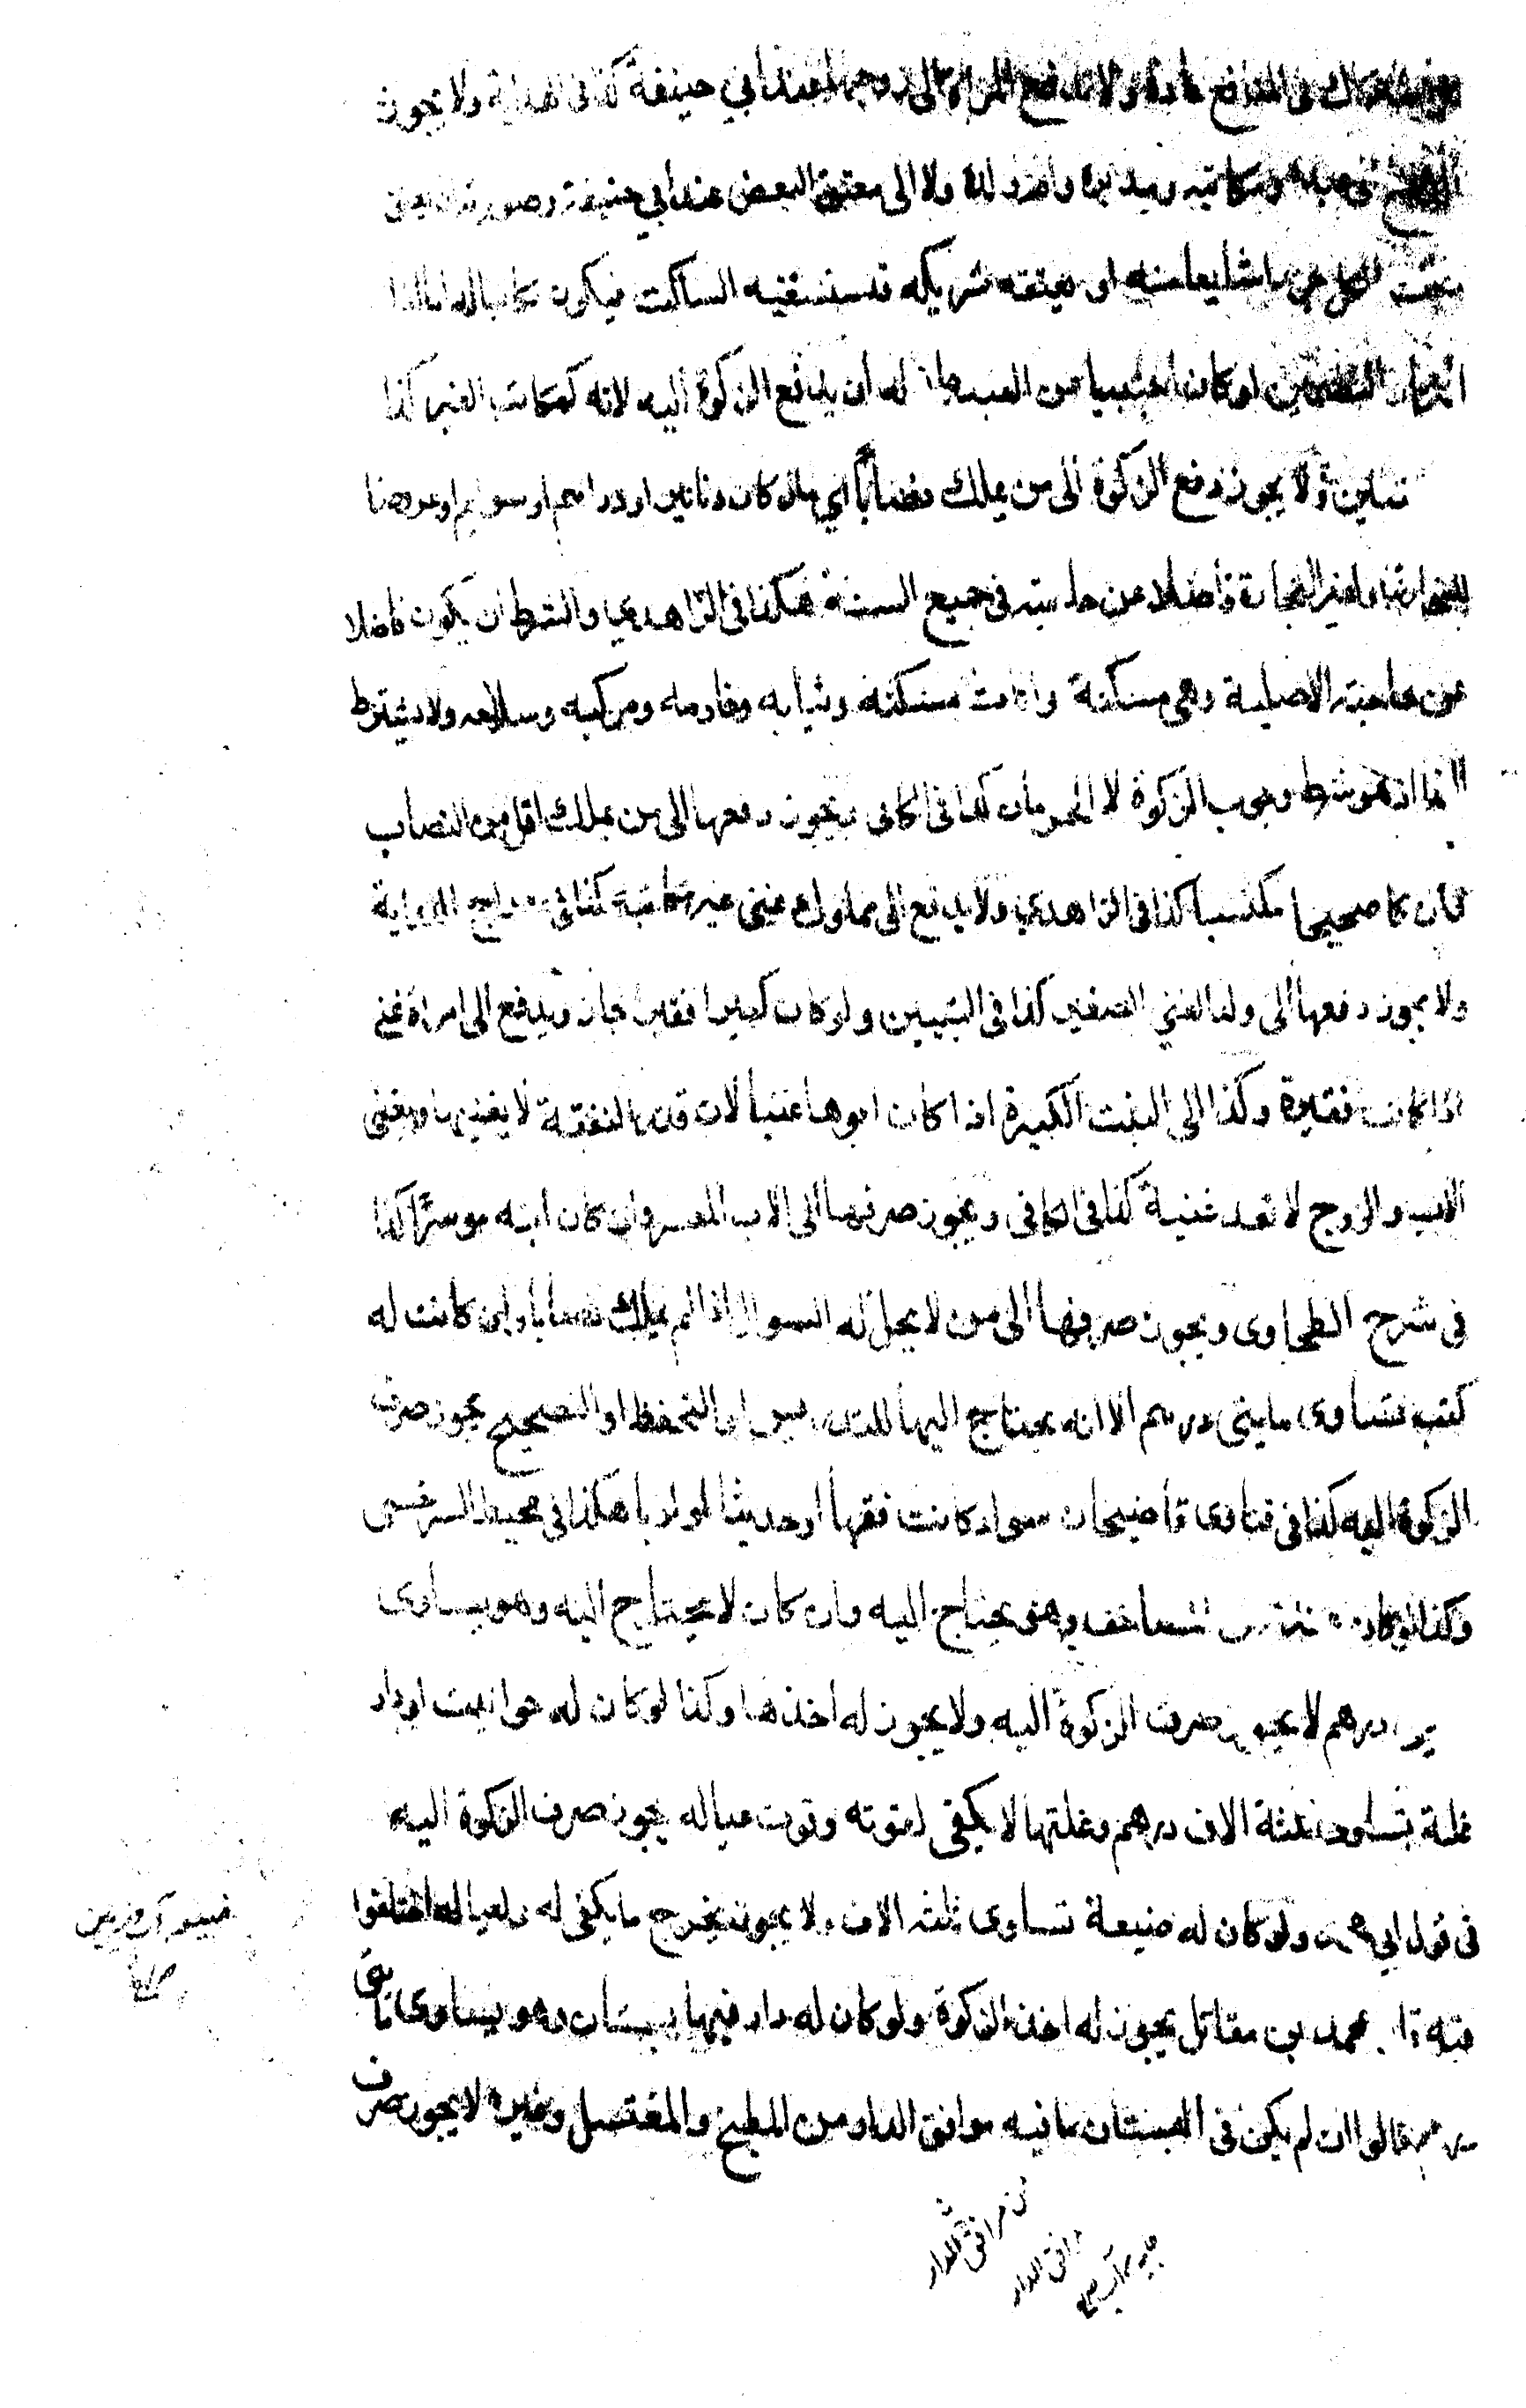 في المنافع عادة ولا تدفع المراة الى زوجها عند أبي حنيفة كذا في الهداية ولا يجوز
الدفع الى عبده ومكاتبه ومدبره وام ولده ولا الى معتق البعض عند أبي حنيفة وصورته ان يعتق
شايعا منه او يعتقه شريكه فيستسعيه الساكت فيكون مكاتبا له اما اذا
اختار التضمين او كان اجنبيا عن العبد جاز له ان يدفع الزكوة اليه لانه كمكاتب الغير كذا
في التبيين ولا يجوز دفع الزكوة الى من يملك نصابا أي مال كان دنانير او دراهم او سوايم او عروضا
للتجارة او لغير التجارة فاضلا عن حاجته في جميع السنة هكذا في الزاهدي والشرط ان يكون فاضلا
عن حاجته الاصلية وهي مسكنه واثاث مسكنه وثيابه وخادمه ومركبه وسلاحه ولا يشترط
النما اذ هو شرط وجوب الزكوة لا الحرمان كذا في الكافي ويجوز دفعها الى من يملك اقل من النصاب
وان كان صحيحا مكتسبا كذا في الزاهدي ولا يدفع الى مملوك غني غير مكاتبه كذا في معراج الدراية
ولا يجوز دفعها الى ولد الغني الصغير كذا في التبيين ولو كان كبيرا فقيرا جاز ويدفع الى امراة غني
اذا كانت فقيرة وكذا الى البنت الكبيرة اذا كان ابوها غنيا لان قدر النفقة لا يغنيها وبغنى
الاب والزوج لا تعد غنية كذا في الكافي ويجوز صرفها الى الاب المعسر وان كان ابنه موسرا كذا
في شرح الطحاوى ويجوز صرفها الى من لا يحل له السوال اذا لم يملك نصابا وان كانت له
كتب تساوى مايتى درهم الا انه يحتاج اليها للتدريس او التحفظ او التصحيح يجوز صرف
الزكوة اليه كذا في فتاوى قاضيخان سواء كانت فقها او حديثا او ادبا هكذا في محيط السرخسى
وكذا لو كان المصاحف وهو يحتاج اليه وان كان لا يحتاج اليه وهو يساوى
درهم لا يجوز صرف الزكوة اليه ولا يجوز له اخذها وكذا لو كان له حوانيت او دار
غلة تساوى ثلثة الاف درهم وغلتها لا يكفى لقوته وقوت عياله يجوز صرف الزكوة اليه
في قول ابي محمد ولو كان له ضيعة تساوى ثلثه الاف ولا يجوز يخرج ما يكفى له ولعياله اختلفوا
فيه قال محمد بن مقاتل يجوز له اخذ الزكوة ولو كان له دار فيها بستان وهو يساوى مايتى
درهم قالوا ان لم يكن في البستان ما فيه موافق الدار من المطبخ والمغتسل وغيره لا يجوز صرف